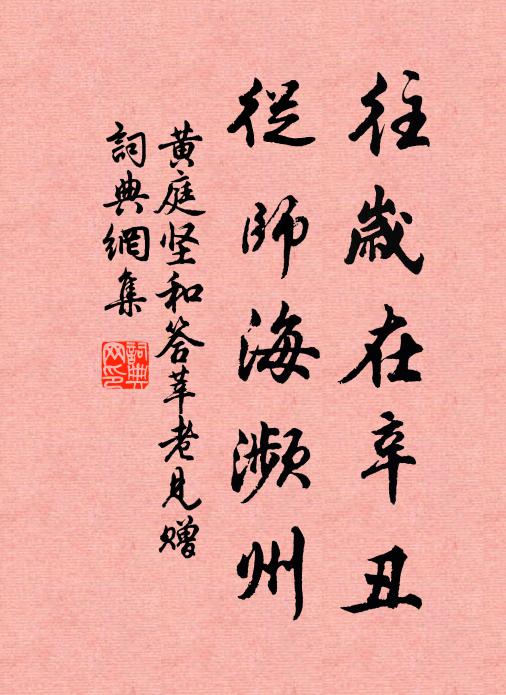 往歲在辛丑
從師海瀕州
黄庭坚和答莘老見赠
詞典網集
詞典網印